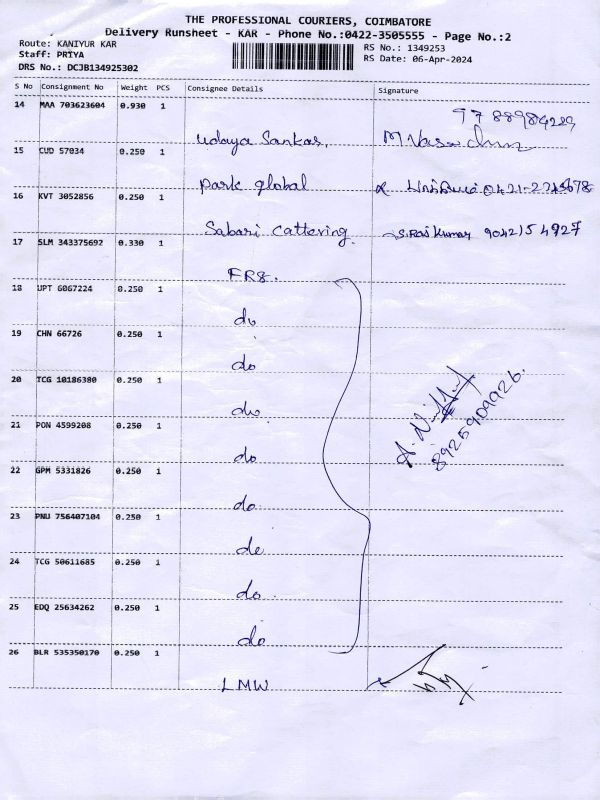 THE PROFESSIONAL COURIERS, COIMBATORE
Delivery Runsheet - KAR - Phone No.:0422-3505555 - Page No.:2
Route: KANIYUR KAR
Staff: PRIYA
DRS No.: DCJB134925302
RS No.: 1349253
RS Date: 06-Apr-2024
S No Consignment No Weight PCS Consignee Details Signature
14 MAA 703623604 0.930 1
Udaya Sankar, M
15 CUD 57034 0.250 1
Park global 0421-
16 KVT 3052856 0.250 1
Sabari Cattering. S. Raj kumar 9042154927
17 SLM 343375692 0.330 1
FRS.
18 UPT 6067224 0.250 1
do
19 CHN 66726 0.250 1
do
20 TCG 10186380 0.250 1
do
21 PON 4599208 0.250 1
do
22 GPM 5331826 0.250 1
do
23 PNU 756407104 0.250 1
do
24 TCG 50611685 0.250 1
do.
25 EDQ 25634262 0.250 1
do
8925909926.
26 BLR 535350170 0.250 1
LMW